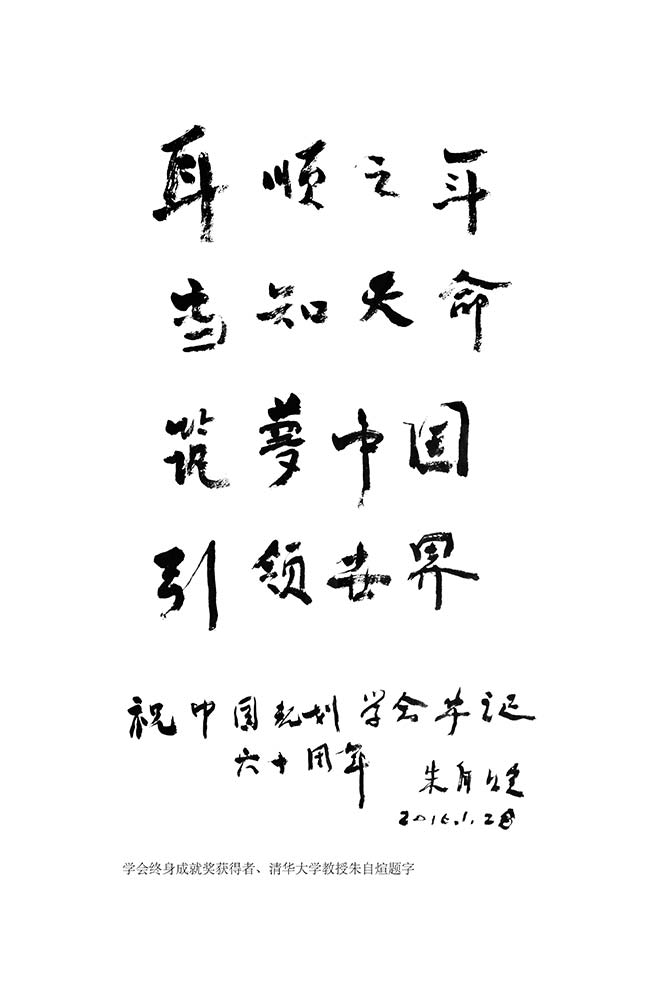 耳顺之年
当知天命
筑夢中国
引领世界
祝中国规划学会华诞
六十周年
朱自煊
2016.1.28
学会终身成就奖获得者、清华大学教授朱自煊题字